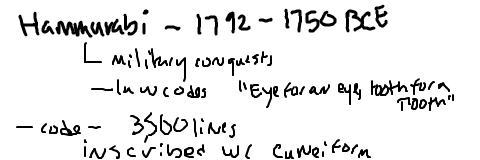 Hammurabi - 1792 - 1750 BCE
military conquests
- law codes "Eye for an eye, tooth for a
Tooth"
- code - 3500 lines
inscribed w/ cuneiform